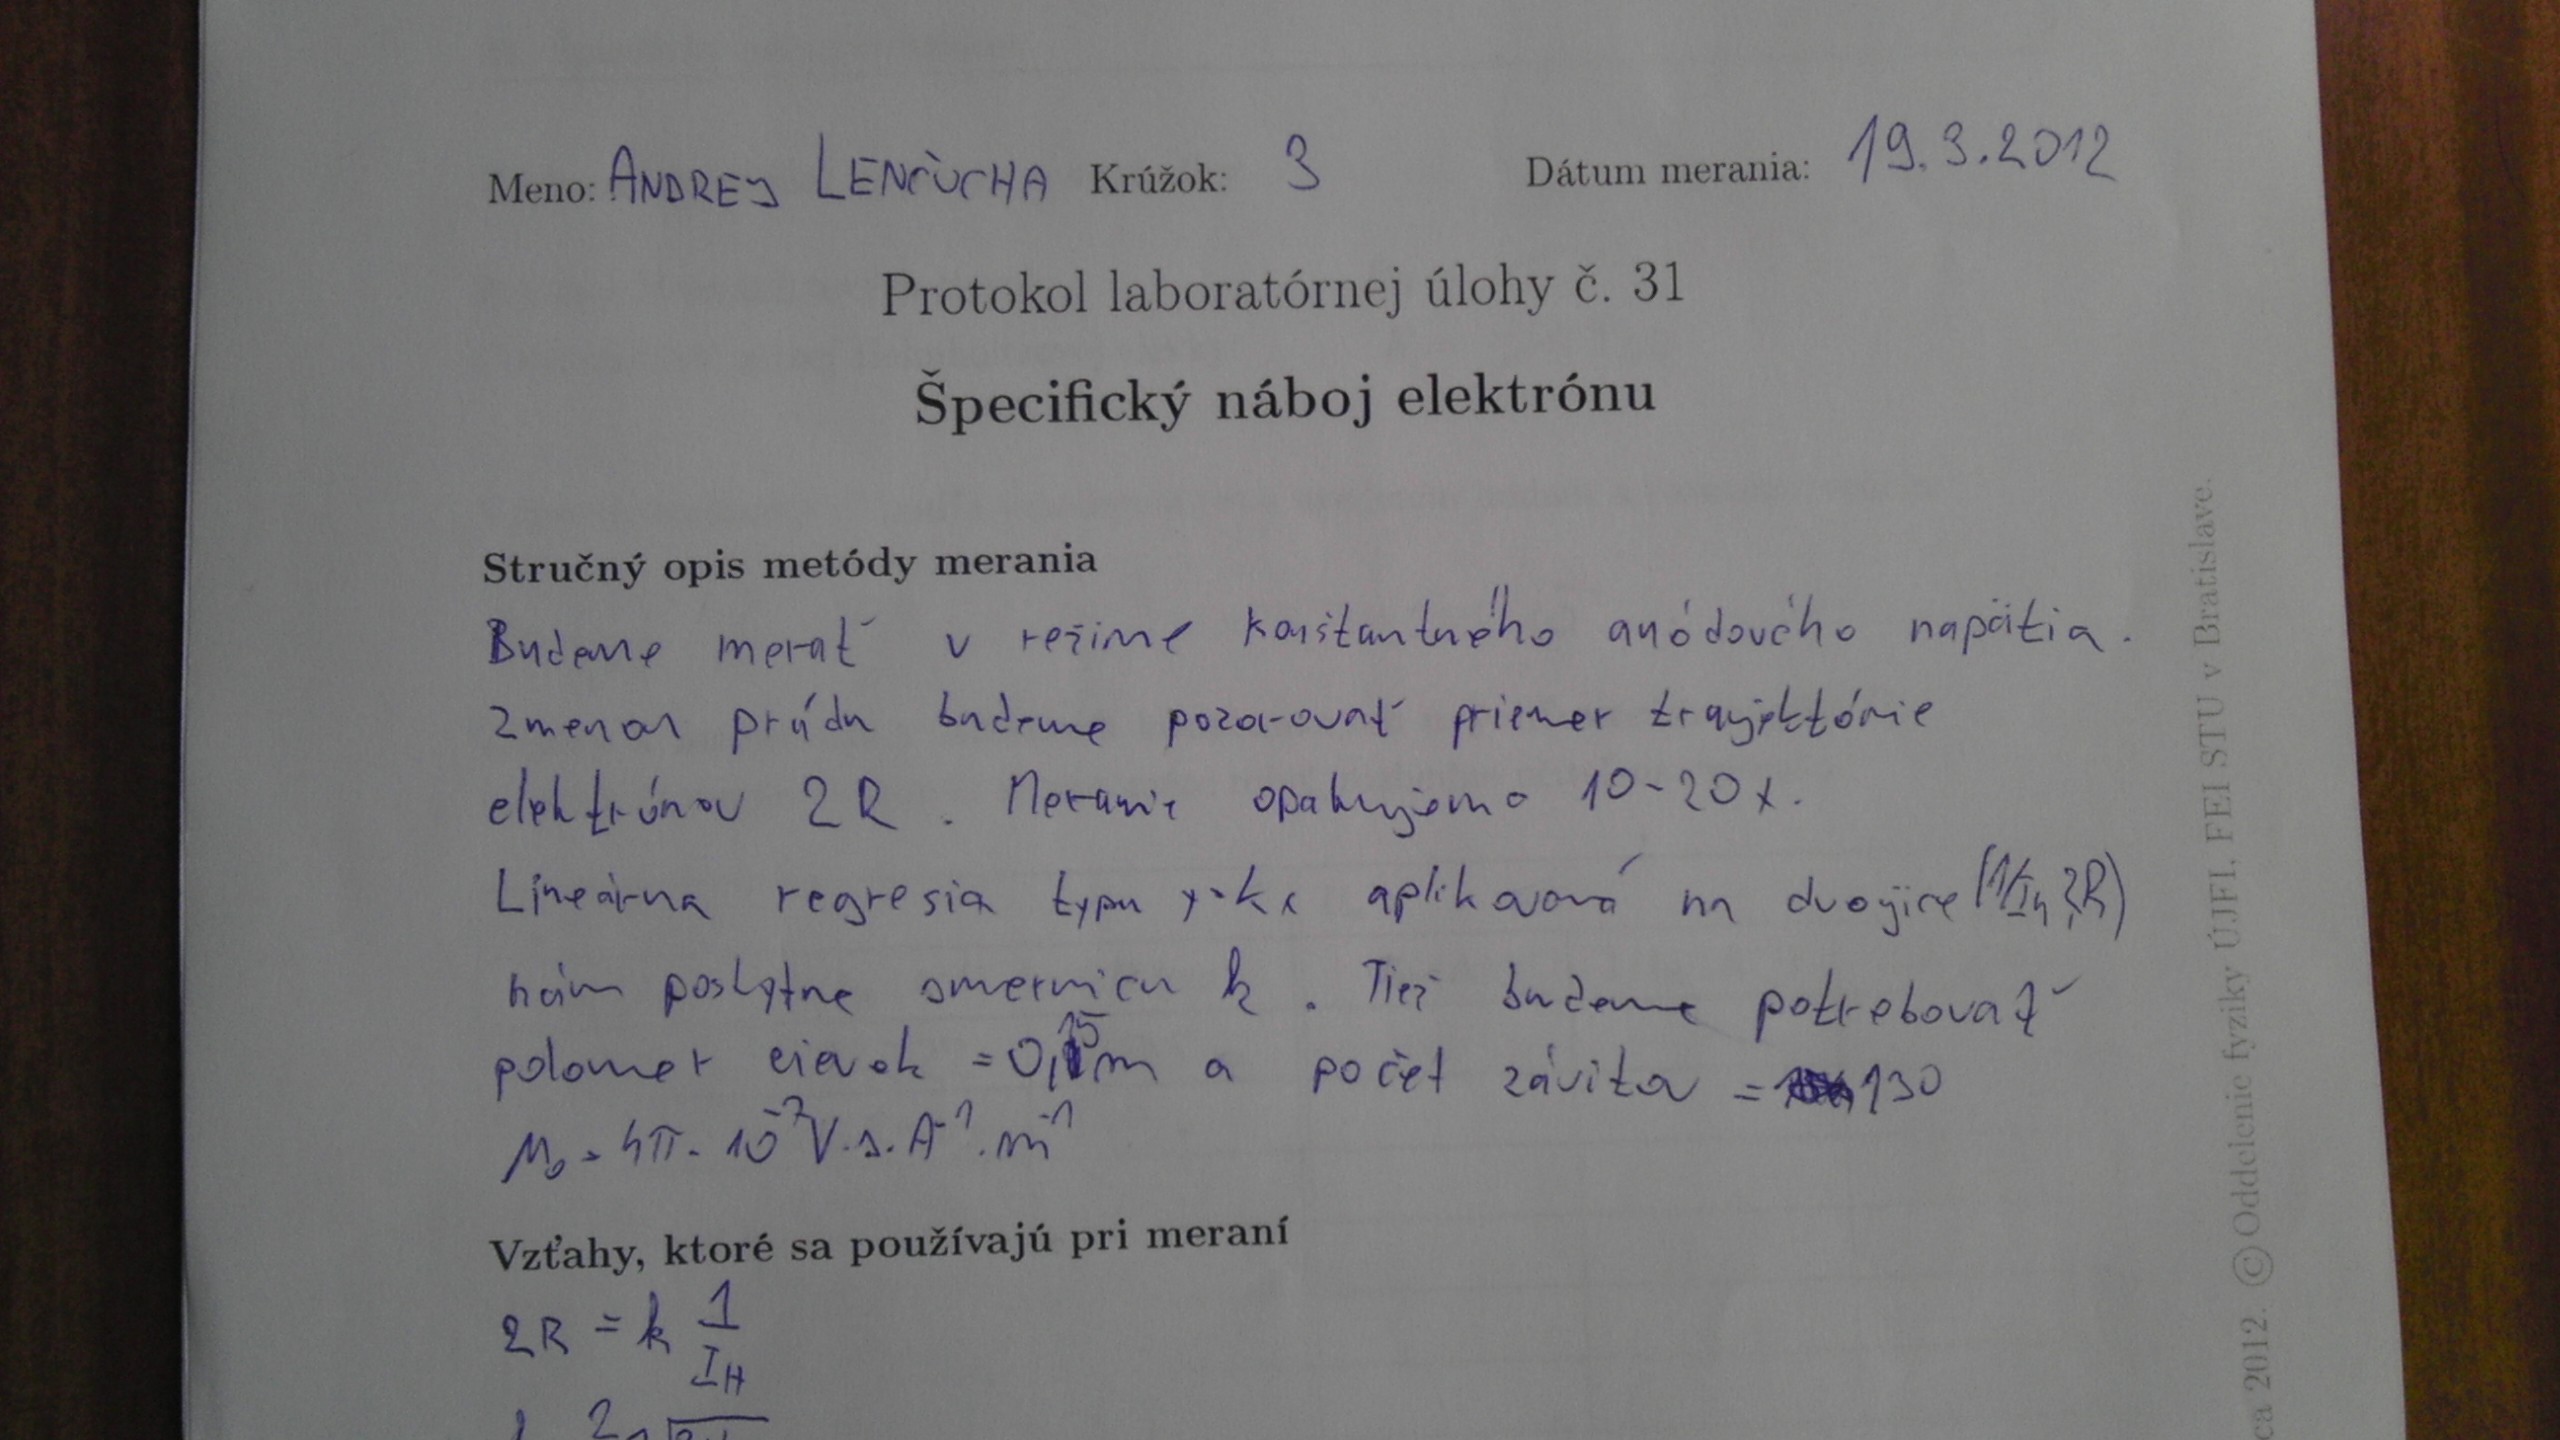 Meno: ANDREJ LENČUCHA Krúžok: 3 Dátum merania: 19.3.2012
Protokol laboratórnej úlohy č. 31
Špecifický náboj elektrónu
Stručný opis metódy merania
Budeme merať v režime konštantného anódového napätia.
Zmenou prúdu budeme pozorovať priemer trajektórie
elektrónov 2R. Meranie opakujeme 10-20x.
Lineárna regresia typu y=kx aplikovaná na dvojice (1/IH, 2R)
nám poskytne smernicu k. Tiež budeme potrebovať
polomer cievok = 0,15m a počet závitov = 130
μ0 = 4π. 10^-7 V.s.A^-1.m^-1
Vzťahy, ktoré sa používajú pri meraní
2R = k 1/IH
ca 2012. © Oddelenie fyziky ÚJFI, FEI STU v Bratislave.